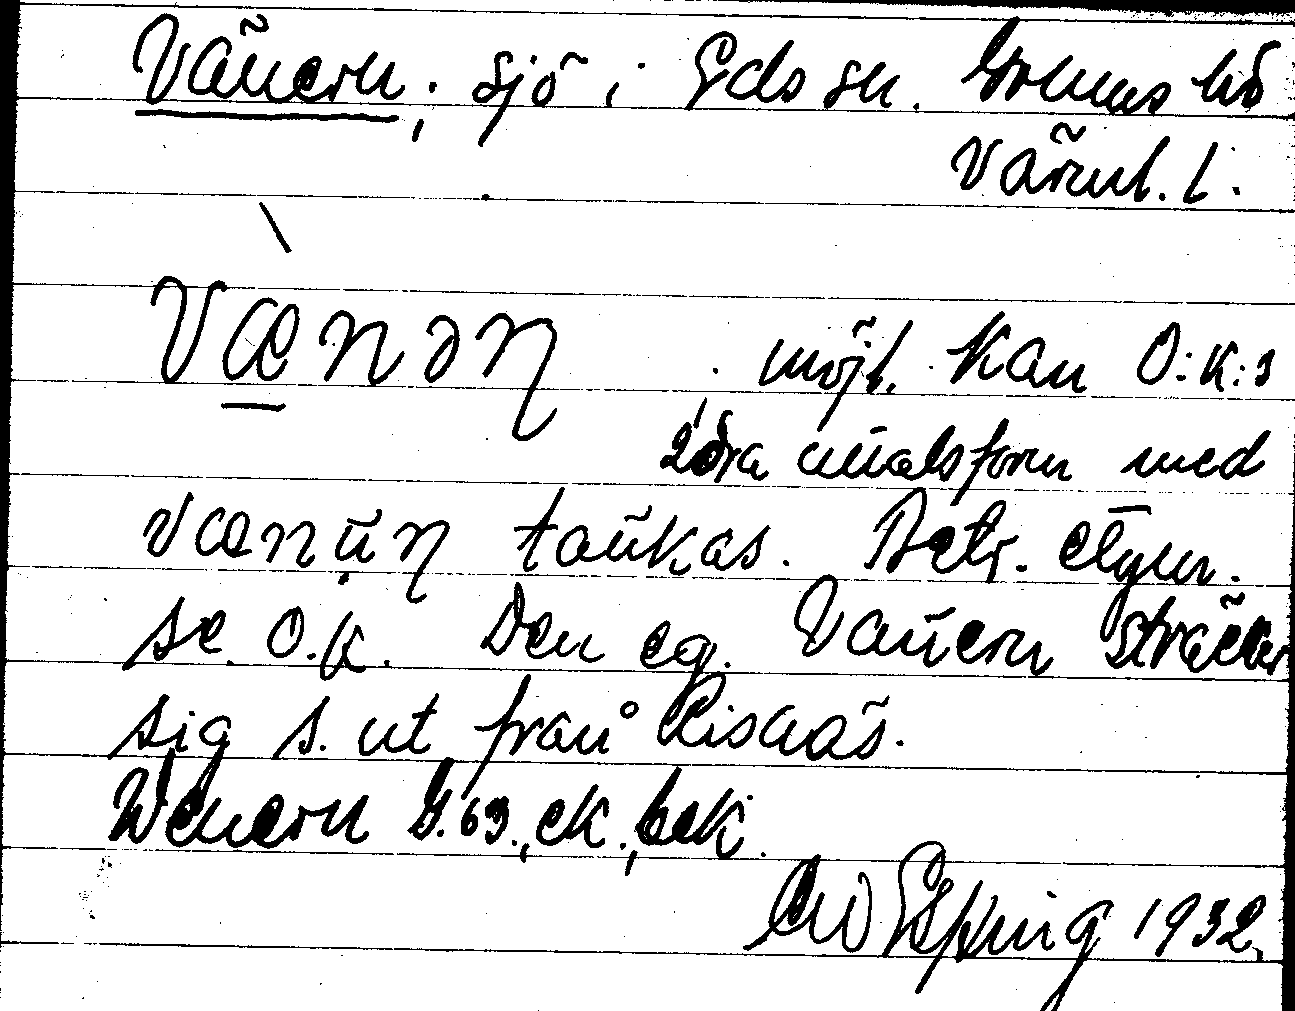 Vänern, sjö i Eds sn. Grums hd
Värml. l.
Vænən möjl. kan O.K:s
2dra uttalsform med
vænun tänkas. Betr. etym.
se O.K. Den eg. Vänern sträcker
sig s. ut från Risaås.
Wenern G. 63., ek., bek.
Espning 1932.